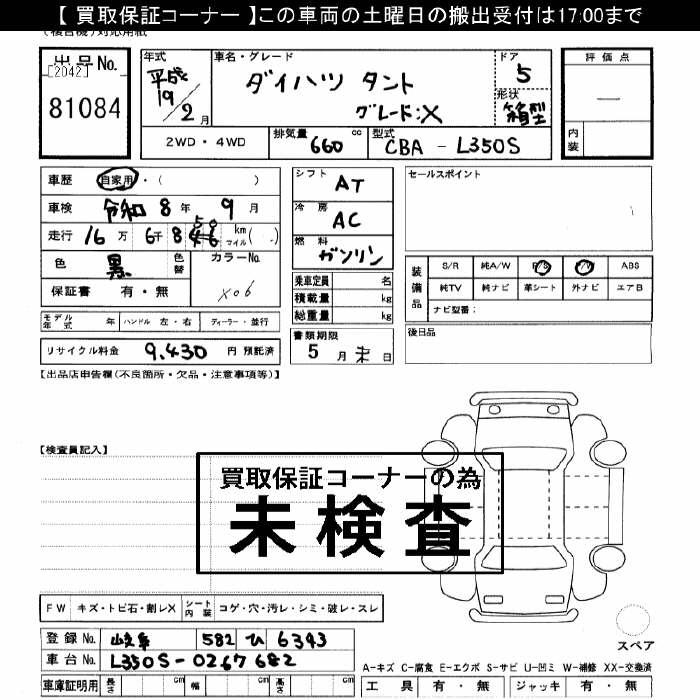 【 買取保証コーナー 】この車両の土曜日の搬出受付は17:00まで
出品No.
[2042]
81084
年式 平成19/2月
車名・グレード
ダイハツ タント
グレード:X
ドア 5
形状 箱型
評価点
—
内装
2WD・4WD
排気量 660 cc
型式 CBA - L350S
車歴 自家用・( )
車検 令和 8年 9月
走行 16万 6千 8 km マイル( . )
色 黒 色替 カラーNo. X06
保証書 有・無
モデル年式 年 ハンドル 左・右 ディーラー・並行
リサイクル料金 9,430 円 預託済
シフト AT
冷房 AC
燃料 ガソリン
乗車定員 名
積載量 kg
総重量 kg
書類期限
5月末日
セールスポイント
装備品
S/R 純A/W P/S P/W ABS
純TV 純ナビ 革シート 外ナビ エアB
ナビ型番:
後日品
【出品店申告欄(不良箇所・欠品・注意事項等)】
【検査員記入】
買取保証コーナーの為
未検査
FW キズ・トビ石・割レX シート内装 コゲ・穴・汚レ・シミ・破レ・スレ
登録No. 岐阜 582 ひ 6343
車台No. L350S-0267682
車庫証明用 長さ cm 幅 cm 高さ cm
スペア
A-キズ C-腐食 E-エクボ S-サビ U-凹ミ W-補修 XX-交換済
工具 有・無 ジャッキ 有・無